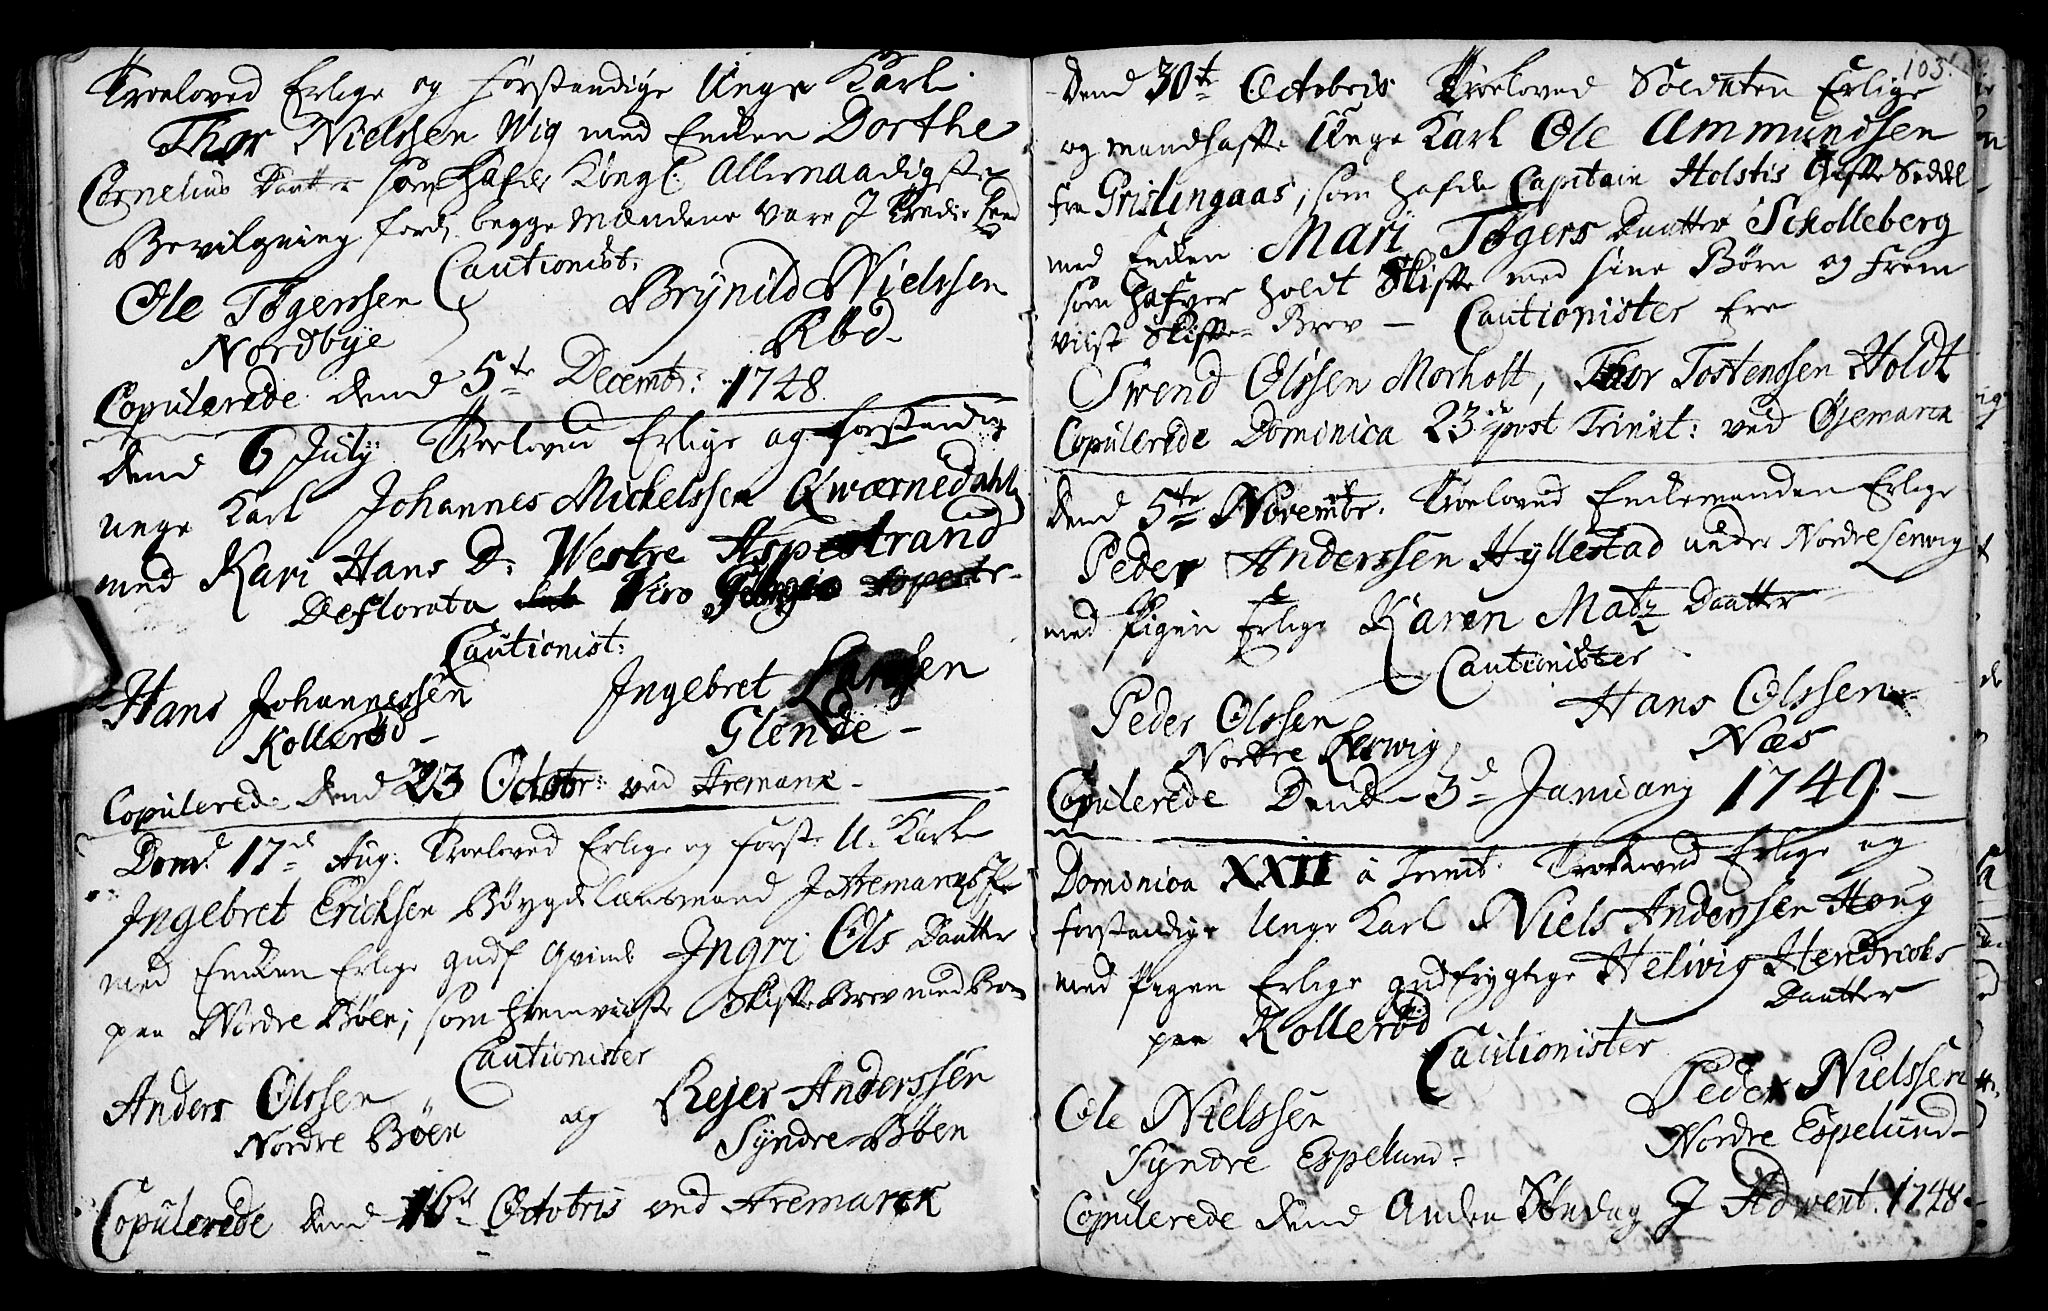 Troeloved Erlige og forstandige Unge Karl
Thor Nielssen Wig med Encken Dorthe
Cornelius Daatter som hafde Kongl: Allernaadigste
Bevilgning fordj begge Mændene vare J Tredie Leed
Cautionist:
Ole Tøgerssen Brÿnild Nielssen
Nordbye Kbd-
Copulerede dend 5te Decembr: 1748.
dend 6 Julÿ Troeloved Erlige og forstandig
unge Karl Johannes Michelssen Qwærnedahl
med Kari Hans D: Westre Aspestrand
Deflorata Viro
Cautionist:
Hans Johannessen Ingebret Larssen
Kollerød- Glende-
Copulered: dend 23 Octobr: ved Aremark-
Dom: 17d Aug: Troeloved Erlige og forst: U. Karl
Ingebret Erichsen Bøygdelænsmand J Aremarks
med Encken Erlige gudf qvinde Ingri Ols Daatter
paa Nordre Bøen; som fremviiste Skifte Brev med
Cautionister
Anders Olssen og Rejer Anderssen
Nordre Bøen Syndre Bøen
Copulerede dend 16d Octobris ved Aremarck
103.
Dend 30te Octobris Troeloved Soldaten Erlige
og mandhafte Unge Karl Ole Ammundsen
fra Grislingaas, som hafde Capitain Holstis Gifte Seddel
med Encken Mari Tøgers Daatter Skolleberg
som hafver holdt Skifte med sine Børn og frem
viist Skifte-Brev - Cautionister ere
Swend Olssen Morholt, Thor Tostenssen Holdt
Copulerede Dominica 23de post Trinit: ved Øjemarck
Dend 5te Novembr. Troeloved Enckemanden Erlige
Peder Anderssen Hyllestad under Nordre Lerwig
med Pigen Erlige Karen Matz Daatter
Cautionister
Peder Olssen Hans Olssen
Nordre Lerwig Næs
Copulerede Dend 3d Januarij 1749.-
Dominica XXII à Trinit. Troeloved Erlige og
forstandige Unge Karl Niels Anderssen Houg
med Pigen Erlige gudfrygtige Helwig Hendrichs
Daatter
paa Kollerød
Cautionister
Ole Nielssen Peder Nielssen
Syndre Espelund- Nordre Espelund-
Copulerede dend Anden Søndag J Adwent. 1748-